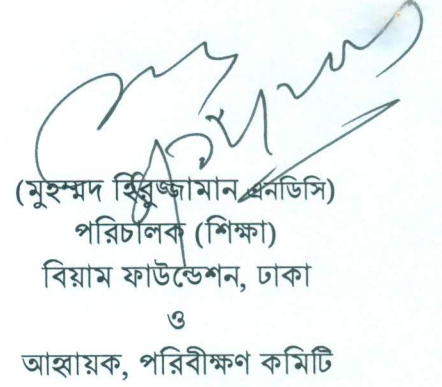 (মুহম্মদ হিরুজ্জামান এনডিসি)
পরিচালক (শিক্ষা)
বিয়াম ফাউন্ডেশন, ঢাকা
ও
আহ্বায়ক, পরিবীক্ষণ কমিটি